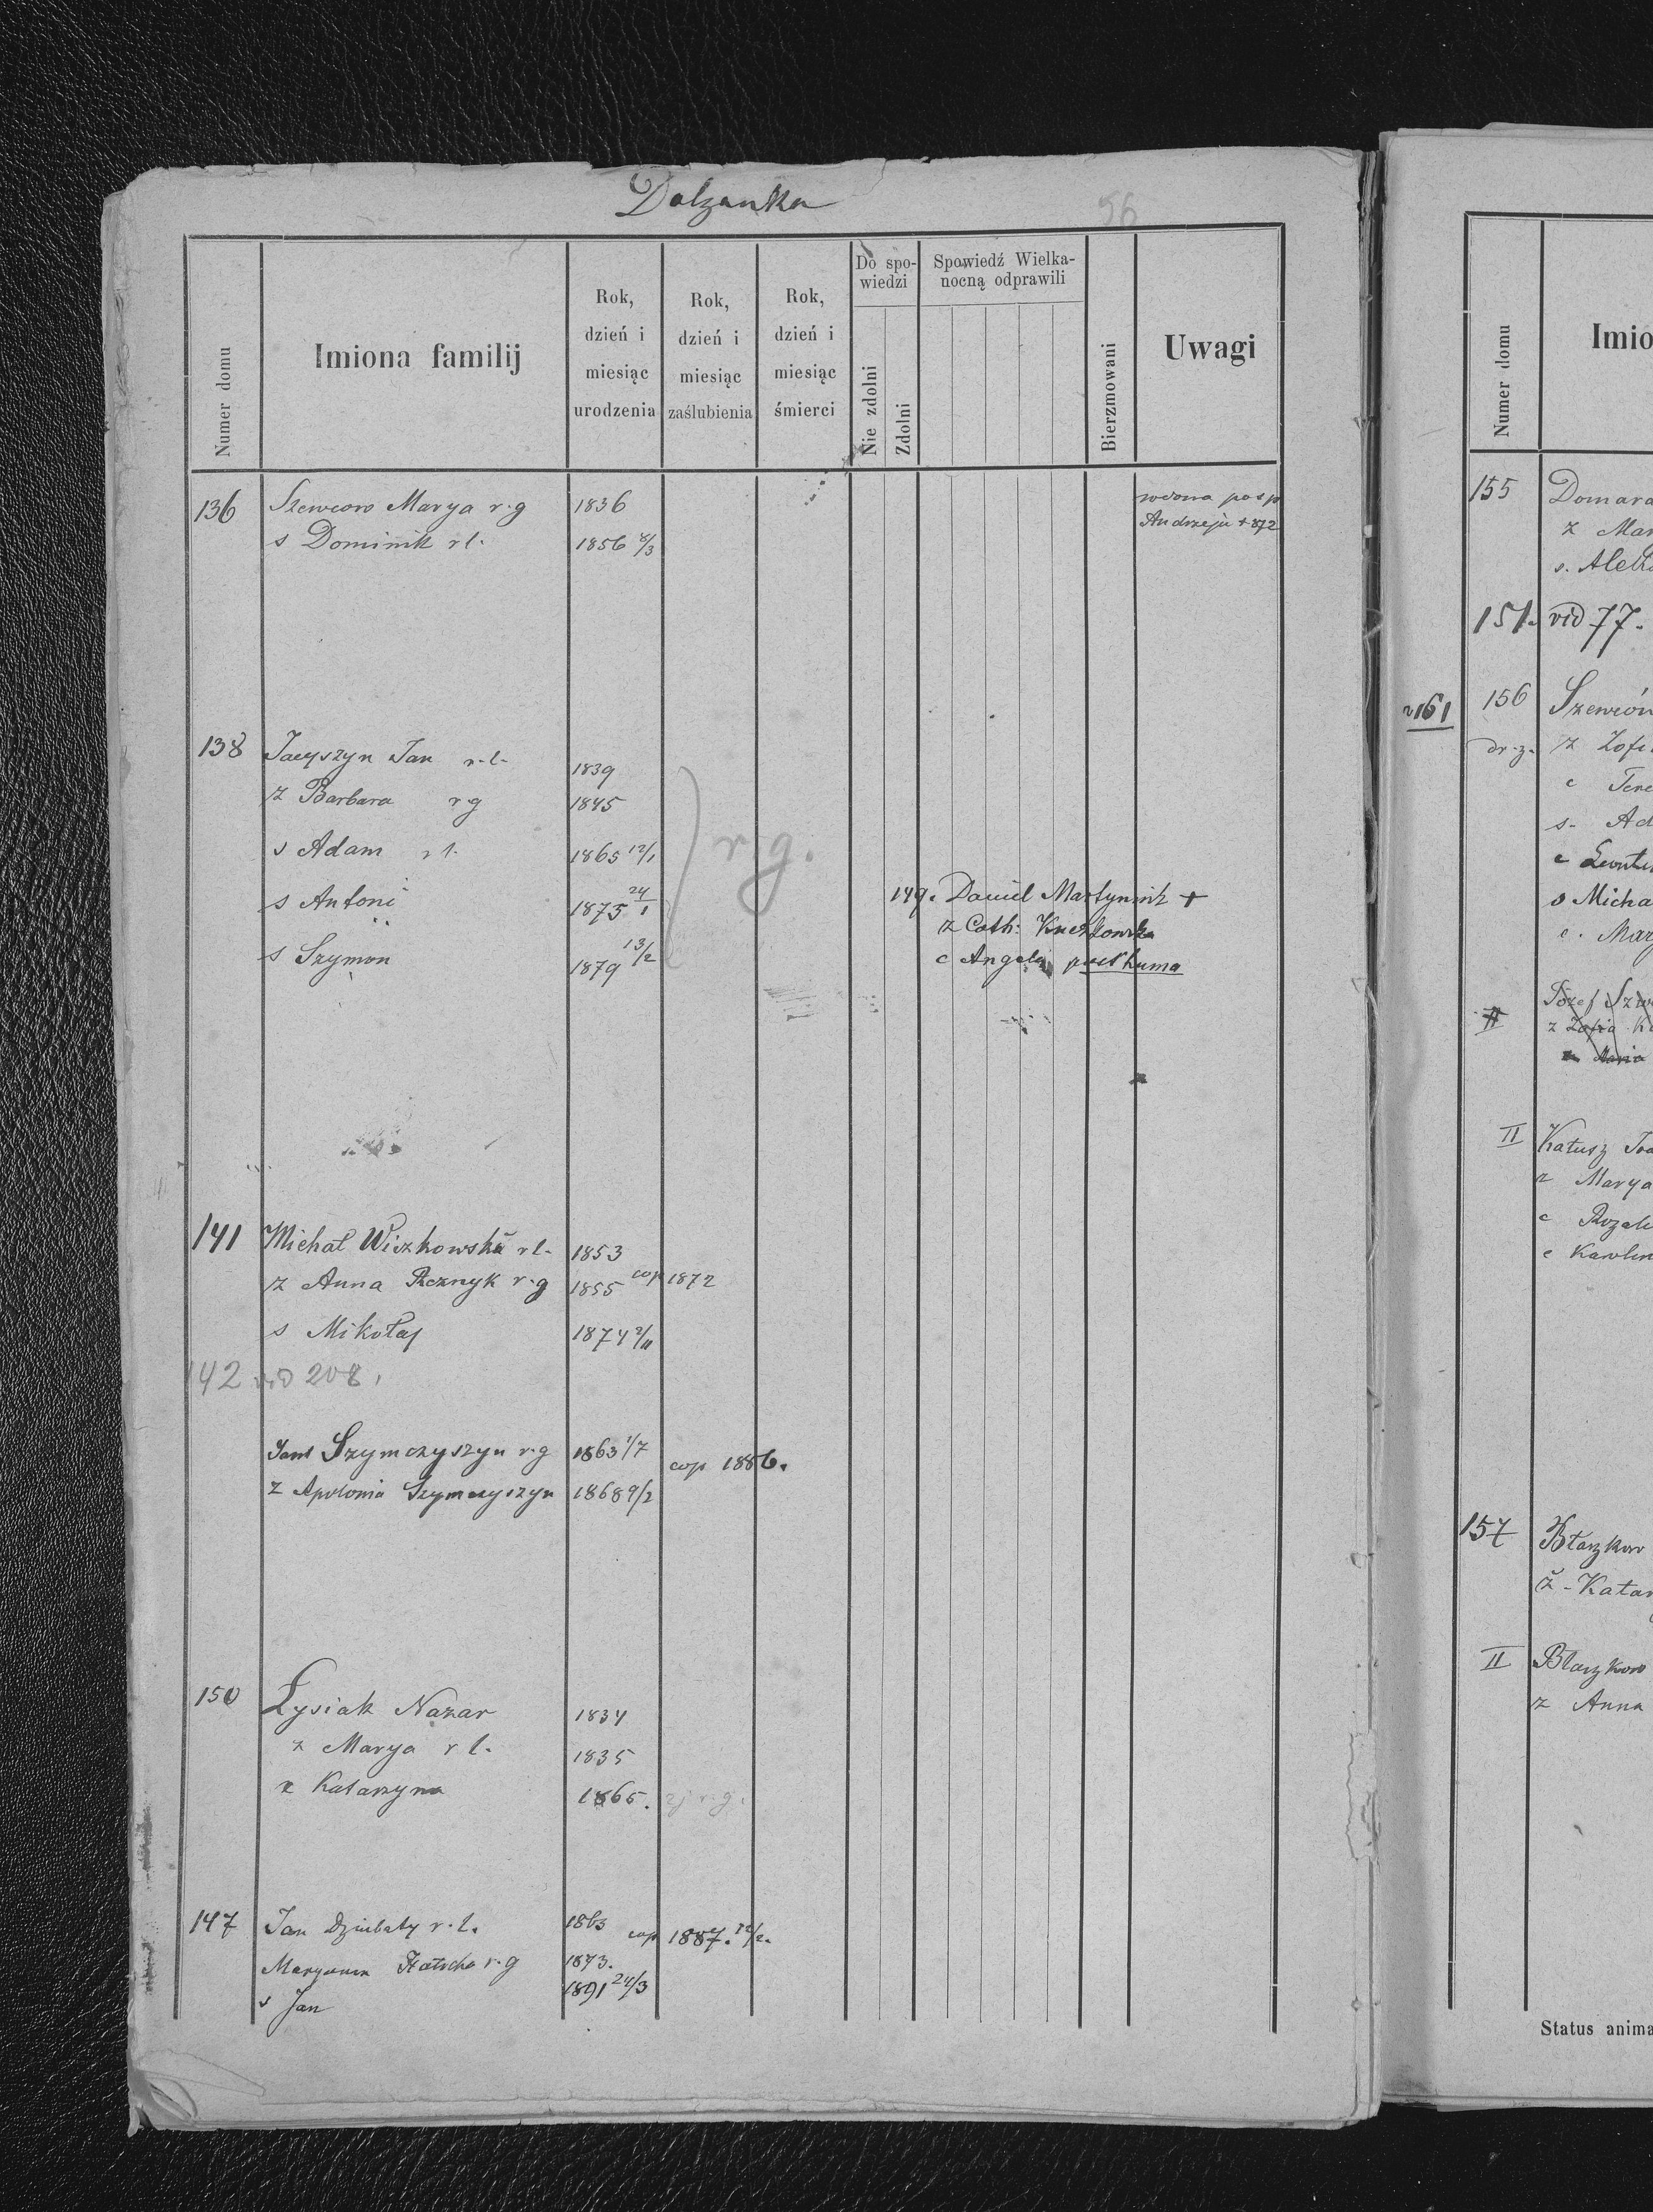 Dolzanka
56
Numer domu
Imiona familij
Rok, dzień i miesiąc urodzenia
Rok, dzień i miesiąc zaślubienia
Rok, dzień i miesiąc śmierci
Do spo-
wiedzi
Nie zdolni
Zdolni
Spowiedź Wielka-
nocną odprawili
Bierzmowani
Uwagi
136 Szewcow Marya r.g 1836 wdowa po s p
Andrzeju + 872
s Dominik r l. 1856 8/3
138 Jacyszyn Jan r.l. 1839
ż Barbara r g 1845
s Adam r l. 1865 12/1
r.g.
s Antoni 1875 24/1
s Szymon 1879 13/2
149. Daniel Martyniuk +
z Cath:
c Angela posthuma
141 Michał Wiczkowski r l. 1853
ż Anna r.g 1855 cop 1872
s Mikołaj 1874 2/11
142 vid 208.
Jan Szymczyszyn r.g 1863 1/7
cop 1886.
z Apolonia Szymczyszyn 1868 9/2
150 Łysiak Nazar 1834
ż Marya r l. 1835
Katarzyna 1865. r.g.
147 Jan Dziubaty r.l. 1863
cop 1887.
Maryanna r.g 1873.
s Jan 1891 24/3
Numer domu
Imio
155 Domara
ż Mar
s.
151. vid 77.
161
156 Szewców
ż Zofi
c Tere
s. Ad
c
s Micha
c. Mary
II
Józef Szew
z Zofia
Maria
II Katusz
ż Marya
c Rozali
c Karolin
157 Błaszkow
ż - Katar
II Błaszkow
ż Anna
Status anima